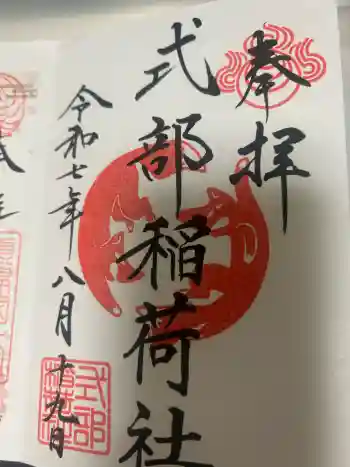 奉拝
式部稲荷社
令和七年八月十九日
式部